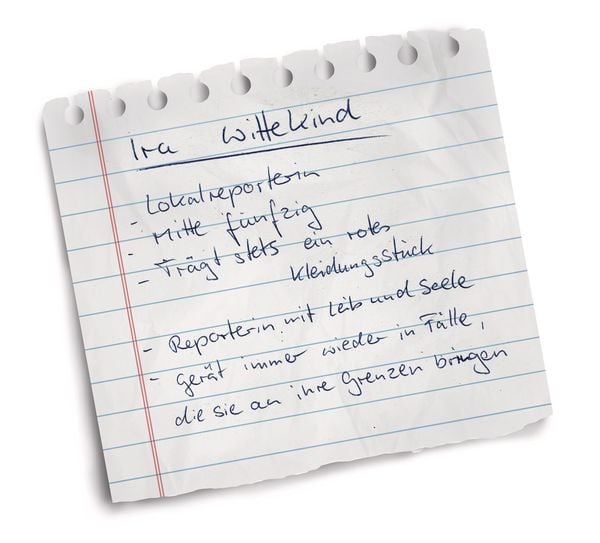 Ira Wittekind
- Lokalreporterin
- Mitte fünfzig
- Trägt stets ein rotes
Kleidungsstück
- Reporterin mit Leib und Seele
- gerät immer wieder in Fälle,
die sie an ihre Grenzen bringen